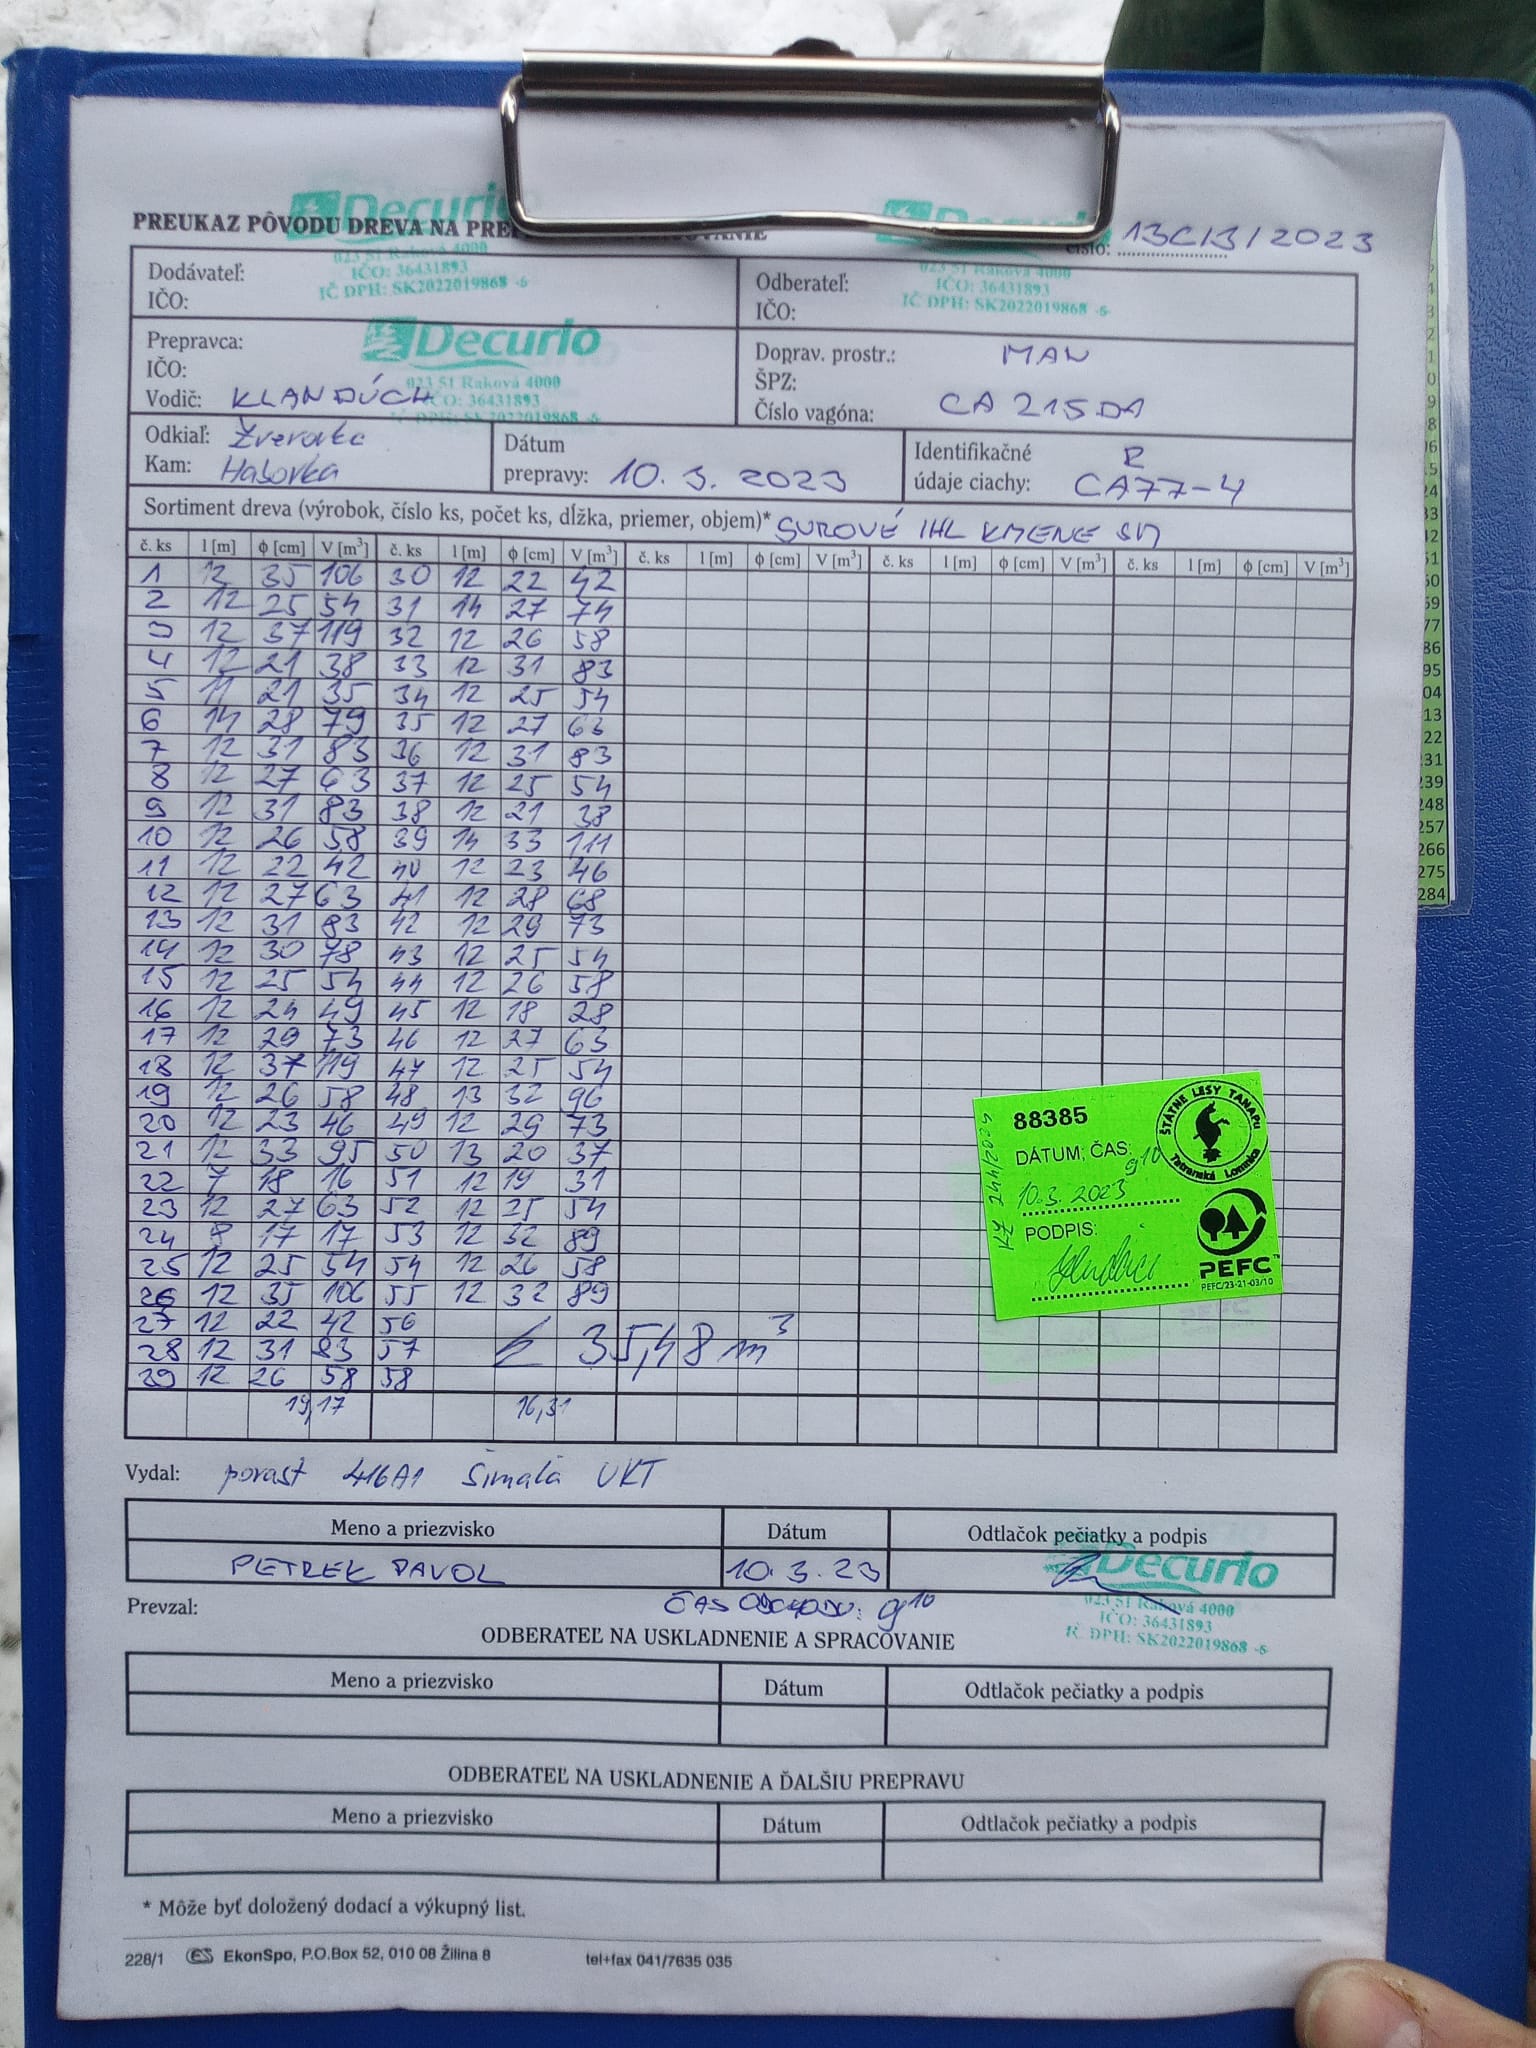 Decurio
PREUKAZ PÔVODU DREVA NA
číslo: 13C/3/2023
023 51 Raková 4000
IČO: 36431893
IČ DPH: SK2022019868 -6-
023 51 Raková 4000
IČO: 36431893
IČ DPH: SK2022019868 -6-
Dodávateľ:
IČO:
Odberateľ:
IČO:
Prepravca:
IČO:
Vodič: KLANDÚCH
Decurio
023 51 Raková 4000
IČO: 36431893
IČ DPH: SK2022019868 -6-
Doprav. prostr.: MAN
ŠPZ:
Číslo vagóna: CA 215DA
Odkiaľ: Zverovka
Kam: Habovka
Dátum
prepravy: 10. 3. 2023
Identifikačné R
údaje ciachy: CA77-4
Sortiment dreva (výrobok, číslo ks, počet ks, dĺžka, priemer, objem)* SUROVÉ IHL KMENE SM
č. ks l [m] ϕ [cm] V [m³] č. ks l [m] ϕ [cm] V [m³] č. ks l [m] ϕ [cm] V [m³] č. ks l [m] ϕ [cm] V [m³] č. ks l [m] ϕ [cm] V [m³]
1 35 106 30 12 22 42
2 12 25 54 31 14 27 74
3 12 37 119 32 12 26 58
4 12 21 38 33 12 31 83
5 11 21 35 34 12 25 54
6 14 28 79 35 12 27 63
7 12 31 83 36 12 31 83
8 12 27 63 37 12 25 54
9 12 31 83 38 12 21 38
10 12 26 58 39 14 33 111
11 12 22 42 40 12 23 46
12 12 27 63 41 12 28 68
13 12 31 83 42 12 29 73
14 12 30 78 43 12 25 54
15 12 25 54 44 12 26 58
16 12 24 49 45 12 18 28
17 12 29 73 46 12 27 63
18 12 37 119 47 12 25 54
19 12 26 58 48 13 32 96
20 12 23 46 49 12 29 73
21 12 33 95 50 13 20 37
22 7 18 16 51 12 19 31
23 12 27 63 52 12 25 54
24 8 17 17 53 12 32 89
25 12 25 54 54 12 26 58
26 12 35 106 55 12 32 89
27 12 22 42 56
28 12 31 83 57
29 12 26 58 58
35,48 m³
19,17 16,31
88385
ŠTÁTNE LESY TANAPu
Tatranská Lomnica
DÁTUM, ČAS: 9 10
10.3. 2023
PODPIS:
PEFC™
PEFC/23-21-03/10
Vydal: porast 416A1 Šimalá UKT
Meno a priezvisko Dátum Odtlačok pečiatky a podpis
PETREK PAVOL 10. 3. 23
Decurio
023 51 Raková 4000
IČO: 36431893
IČ DPH: SK2022019868 -6-
Prevzal: ČAS ODCHODU: 9 10
ODBERATEĽ NA USKLADNENIE A SPRACOVANIE
Meno a priezvisko Dátum Odtlačok pečiatky a podpis
ODBERATEĽ NA USKLADNENIE A ĎALŠIU PREPRAVU
Meno a priezvisko Dátum Odtlačok pečiatky a podpis
* Môže byť doložený dodací a výkupný list.
228/1 ES EkonSpo, P.O.Box 52, 010 08 Žilina 8 tel+fax 041/7635 035